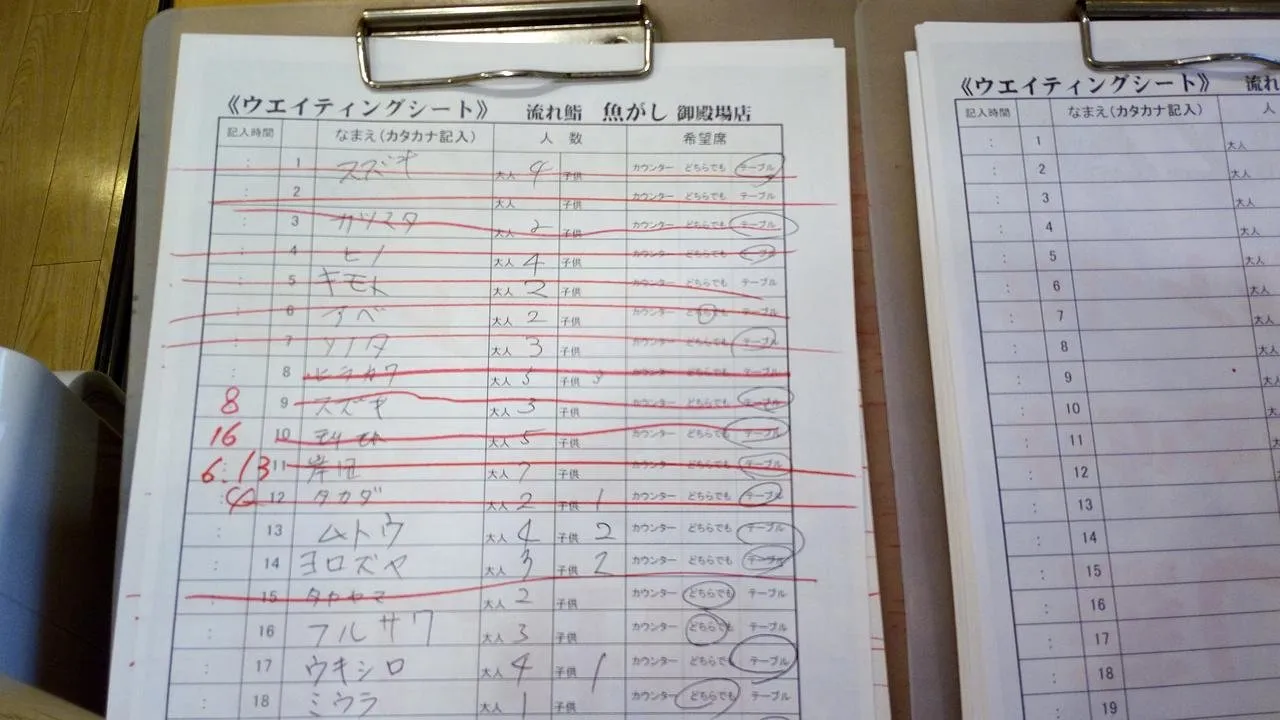 《ウエイティングシート》 流れ鮨 魚がし 御殿場店
記入時間 なまえ(カタカナ記入) 人数 希望席
: 1 スズキ 大人 4 子供 カウンター どちらでも テーブル
: 2 大人 子供 カウンター どちらでも テーブル
: 3 カツマタ 大人 2 子供 カウンター どちらでも テーブル
: 4 ヒノ 大人 4 子供 カウンター どちらでも テーブル
: 5 キモト 大人 2 子供 カウンター どちらでも テーブル
: 6 アベ 大人 2 子供 カウンター どちらでも テーブル
: 7 ソノダ 大人 3 子供 カウンター どちらでも テーブル
: 8 ヒラカワ 大人 5 子供 3 カウンター どちらでも テーブル
8 9 スズキ 大人 3 子供 カウンター どちらでも テーブル
16 10 大人 5 子供 カウンター どちらでも テーブル
6.13 11 大人 7 子供 カウンター どちらでも テーブル
: 12 タカダ 大人 2 子供 1 カウンター どちらでも テーブル
: 13 ムトウ 大人 4 子供 2 カウンター どちらでも テーブル
: 14 ヨロズヤ 大人 3 子供 2 カウンター どちらでも テーブル
: 15 タカヤマ 大人 2 子供 カウンター どちらでも テーブル
: 16 フルサワ 大人 3 子供 カウンター どちらでも テーブル
: 17 ウキシロ 大人 4 子供 1 カウンター どちらでも テーブル
: 18 ミウラ 大人 1 子供 カウンター どちらでも テーブル
《ウエイティングシート》 流れ
記入時間 なまえ(カタカナ記入) 人
: 1 大人
: 2 大人
: 3 大人
: 4 大人
: 5 大人
: 6 大人
: 7 大人
: 8 大人
: 9 大人
: 10 大人
: 11 大人
: 12 大人
: 13 大人
: 14 大人
: 15 大人
: 16 大人
: 17 大人
: 18 大人
: 19